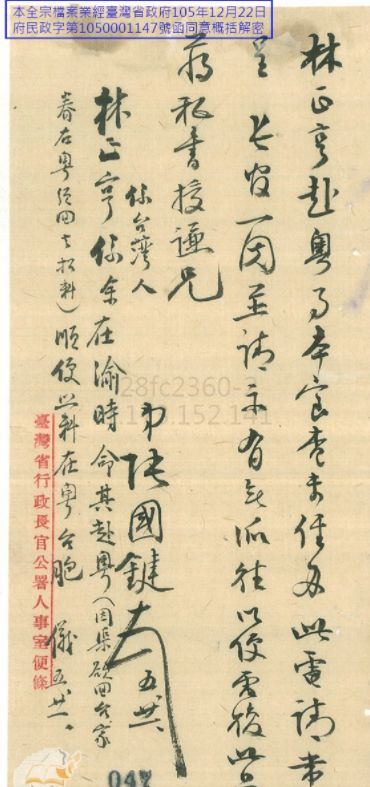 本全宗檔案業經臺灣省政府105年12月22日
府民政字第1050001147號函同意概括解密
林正亨赴粵事本室查未任及此電請帶
呈 長官一閱並請示有無派往以便電復此
蔣秘書授謙兄
弟張國鍵 五、廿一、
林正亨係台灣人
係余在渝時命其赴粵(因渠欲回台家
眷在粵須回去招料)順便照料在粵台胞 儀 五、廿一、
臺灣省行政長官公署人事室便條
28fc2360-
152.141
047